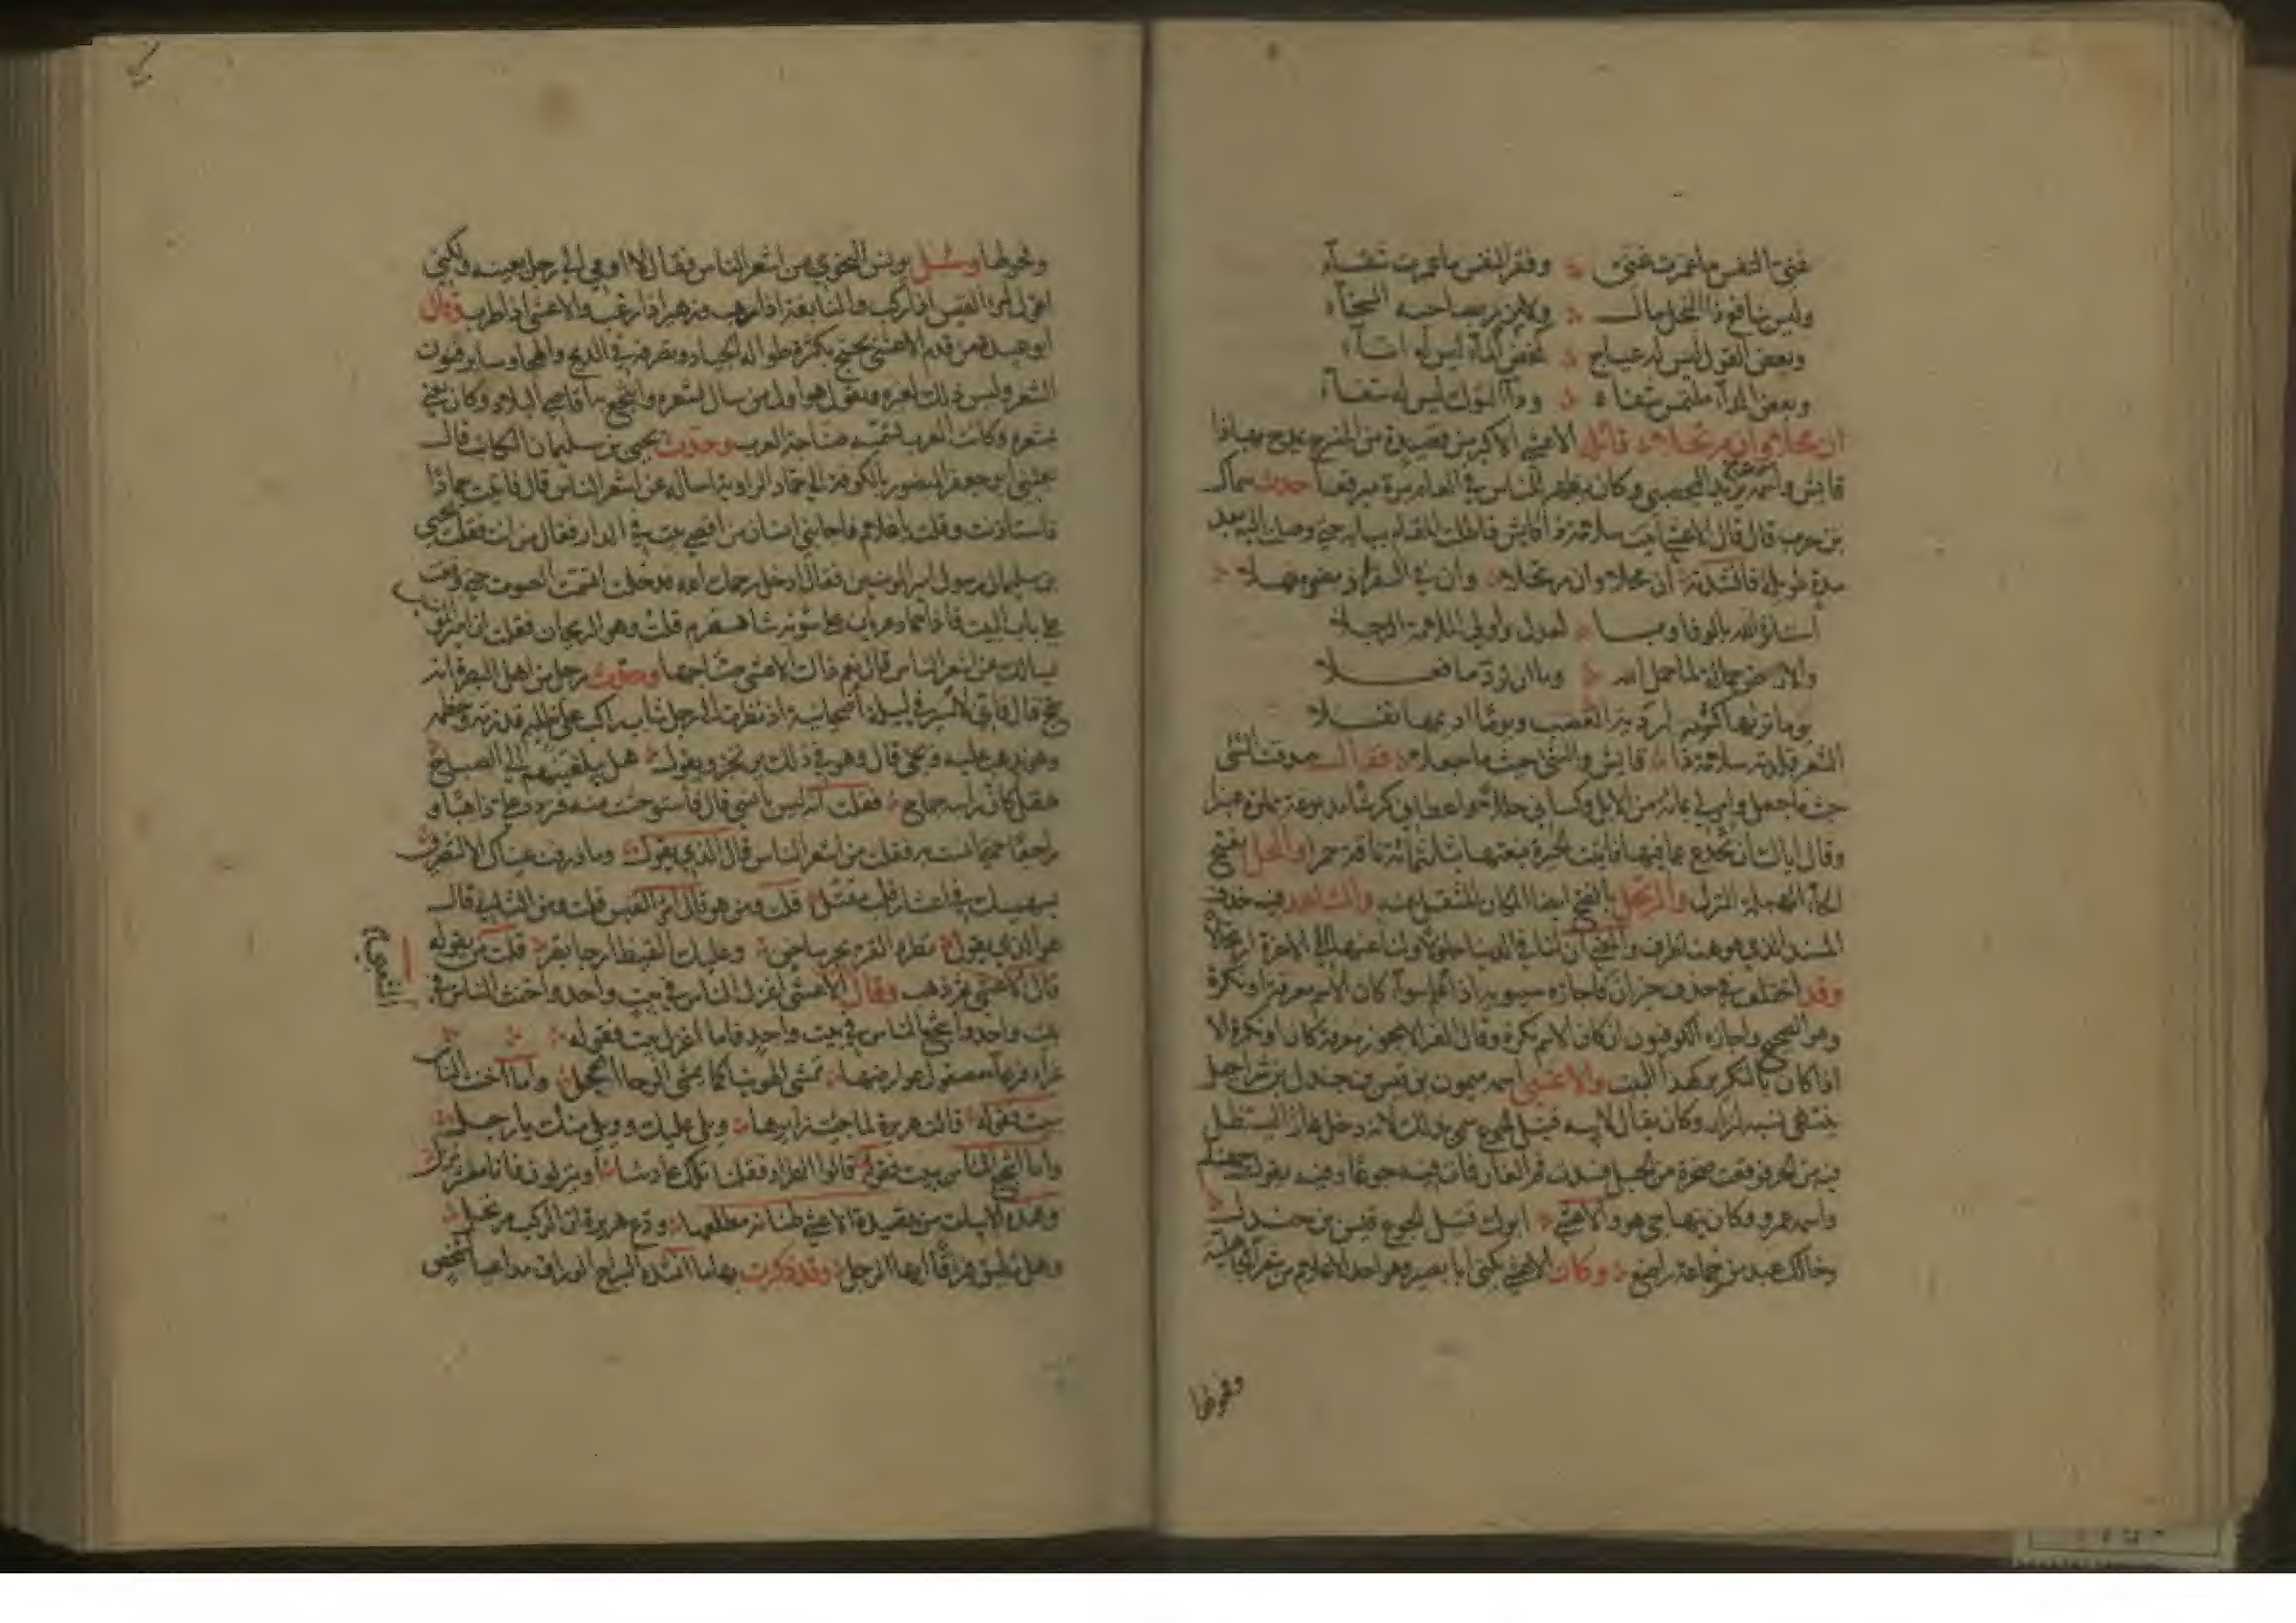 غنى النفس ما عمرت غنى وفقر النفس ما عمرت شقاء
وليس بنافع ذا البخل مال ولا مزر بصاحبه السخاء
وبعض القول ليس له عياج كمخض الماء ليس له اتاء
وبعض الداء ملتمس شفاه وداء النوك ليس له شفاء
ان محلا وان مرتحلا قائله الاعشى الاكبر من قصيدة من المنسرح يمدح بها ذا
فائش واسمه يزيد اليحصبي وكان يظهر للناس في العام مرة مبرقعا حدث سماك
بن حرب قال قال الاعشى اتيت سلامة ذا فائش فاطلت المقام ببابه حتى وصلت اليه بعد
مدة طويلة فانشدته ان محلا وان مرتحلا وان في السفر اذ مضوا مهلا
استأثر الله بالوفا و با لعدل واولى الملامة الرجلا
والارض حمالة لما حمل الله وما ان ترد ما فعلا
يوما تراها كشبه اردية العصب ويوما اديمها نغلا
الشعر قلدته سلامة ذا فائش والشي حيث ما جعلا فقال صدقت الشي
حيث ما جعل وامر لي بمائة من الابل وكساني حللا واعطاني كرشا مدبوغة مملوءة عنبرا
وقال اياك ان تخدع عما فيها فاتيت الحيرة فبعتها بثلثمائة ناقة حمرا والمحل بفتح
الحاء المهملة المنزل والمرتحل بالفتح ايضا المكان المنتقل عنه والشاهد فيه حذف
المسند الذي هو هنا ظرف والمعنى ان لنا في الدنيا حلولا ولنا عنها الى الاخرة ارتحالا
وقد اختلف في حذف خبر ان فاجازه سيبويه اذا علم سواء كان الاسم معرفة او نكرة
وهو الصحيح واجازه الكوفيون ان كان الاسم نكرة وقال الفرا لا يجوز معرفة كان او نكرة الا
اذا كان بالتكرير كهذا البيت والاعشى اسمه ميمون بن قيس بن جندل بن شراحيل
ينتهي نسبه لنزار وكان يقال لابيه قتيل الجوع سمي بذلك لانه دخل غارا ليستظل
فيه من الحر فوقعت صخرة من الجبل فسدت فم الغار فمات فيه جوعا وفيه يقول جهنام
واسمه عمرو وكان يتهاجى هو والاعشى ابوك قتيل الجوع قيس بن جندل
وخالك عبد من خماعة راضع وكان الاعشى يكنى ابا بصير وهو احد الاعلام من شعراء الجاهلية
وفحولها
وفحولها وسئل يونس النحوي من اشعر الناس فقال لا اومي الى رجل بعينه ولكني
اقول امرء القيس اذا ركب والنابغة اذا رهب وزهير اذا رغب والاعشى اذا طرب وقال
ابو عبيدة من قدم الاعشى يحتج بكثرة طواله الجياد وتصرفه في المديح والهجا وسائر فنون
الشعر وليس ذلك لغيره ويقول هو اول من سال بشعره وانتجع به اقاصي البلاد وكان يغنى
بشعره وكانت العرب تسميه صناجة العرب وحدث يحيى بن سليمان الكاتب قال
بعثني ابو جعفر المنصور بالكوفة الى حماد الراوية اسأله عن اشعر الناس قال فاتيت حمادا
فاستاذنت وقلت يا غلام فاجابني انسان من اقصى بيت في الدار فقال من انت فقلت يحيى
بن سليمان رسول امير المومنين فقال ادخل رحمك الله فدخلت اتسمت الصوت حتى وقفت
على باب البيت فاذا حماد عريان على سوته شاهسفرم قلت وهو الريحان فقلت ان امير المؤمنين
يسالك عن اشعر الناس قال نعم ذاك الاعشى صناجها وحدث رجل من اهل البصرة انه
حج قال فاني لاسير في ليلة اضحيانة اذ نظرت الى رجل شاب راكب على ظليم قد زمه وخطمه
وهو يذهب عليه ويجي قال وهو في ذلك يرتجز ويقول هل يبلغنيهم الى الصباح
هقل كان راسه جماح فقلت انه ليس بانسي قال فاستوحشت منه فتردد علي ذاهبا و
راجعا حتى انست به فقلت من اشعر الناس قال الذي يقول وما ذرفت عيناك الا لتضربي
بسهميك في اعشار قلب مقتل قلت ومن هو قال امرء القيس قلت ومن الثاني قال
هو الذي يقول تطرد القر بحر ساخن وعكيك القيظ ان جا بقر قلت من يقوله
قال الاعشى ثم ذهب وقال الاعشى اغزل الناس في بيت واحد واخنث الناس في
الشعبي
بيت واحد واشجع الناس في بيت واحد فاما اغزل بيت فقوله
غراء فرعاء مصقول عوارضها تمشي الهوينا كما يمشي الوجا الوحل واما اخنث الناس
بيت فقوله قالت هريرة لما جئت زايرها ويلي عليك وويلي منك يا رجل
واما اشجع الناس بيت فقوله قالوا الطراد فقلنا تلك عادتنا او تنزلون فانا معشر نزل
وهذه الابيات من قصيدة الاعشى طنانة مطلعها ودع هريرة ان الركب مرتحل
وهل تطيق وداعا ايها الرجل وقد ذكرت بهذا ما انشده السراج الوراق مداعبا لشخص